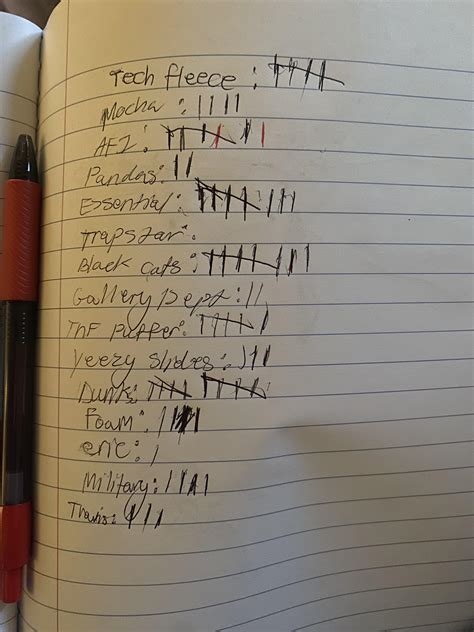 Tech fleece : 
Mocha : ||||
AF1 : 
Pandas : ||
Essential : 
Trapstar :
Black Cats : 
Gallery Dept : ||
TNF Puffer : 
Yeezy Slides : |||
Dunks : 
Foam : 
eric : |
Military : ||||
Travis : |||